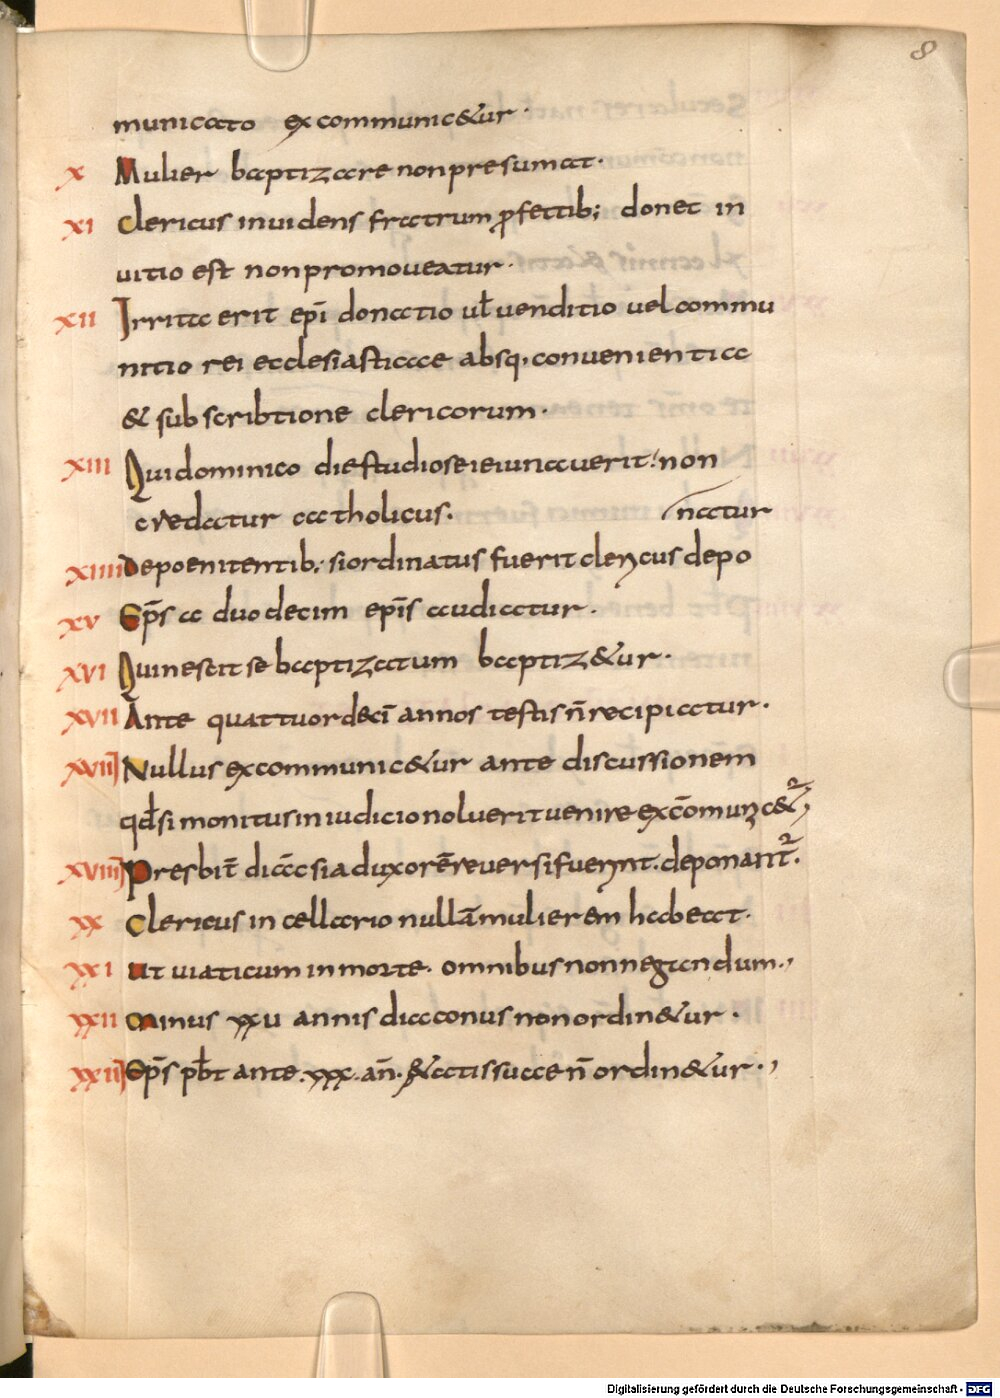 8
municato excommunic&ur·
x Mulier baptizare non presumat·
xi Clericus inuidens fratrum ꝓfectib; donec in
uitio est non promoueatur·
xii Irrita erit epī donatio uł venditio vel commu
nitio rei ecclesiasticae absq· conuenientia
& subscribtione clericorum·
xiii Qui dominico die studiose ieiunauerit· non
credatur catholicus·
natur
xiiii De poenitentib; si ordinatus fuerit clericus depo
xv Ep̄s a duodecim epīs audiatur·
xvi Qui nescit se baptizatum baptiz&ur·
xvii Ante quattuordecī annos testis n̄ recipiatur·
xviii Nullus excommunic&ur ante discussionem
qđ si monitus in iudicio noluerit uenire excōmunic&ur
xviiii Presbit̄ diac̄ si ad uxorē reuersi fuerint· deponant᷑·
xx Clericus in cellario nullā mulierem habeat·
xxi Ut uiaticum in morte· omnibus non negandum·
xxii Minus xxu annis diaconus non ordin&ur·
xxiii Ep̄s pb̄t ante· xxx· an̄· &atis suae n̄ ordin&ur·
Digitalisierung gefördert durch die Deutsche Forschungsgemeinschaft - DFG